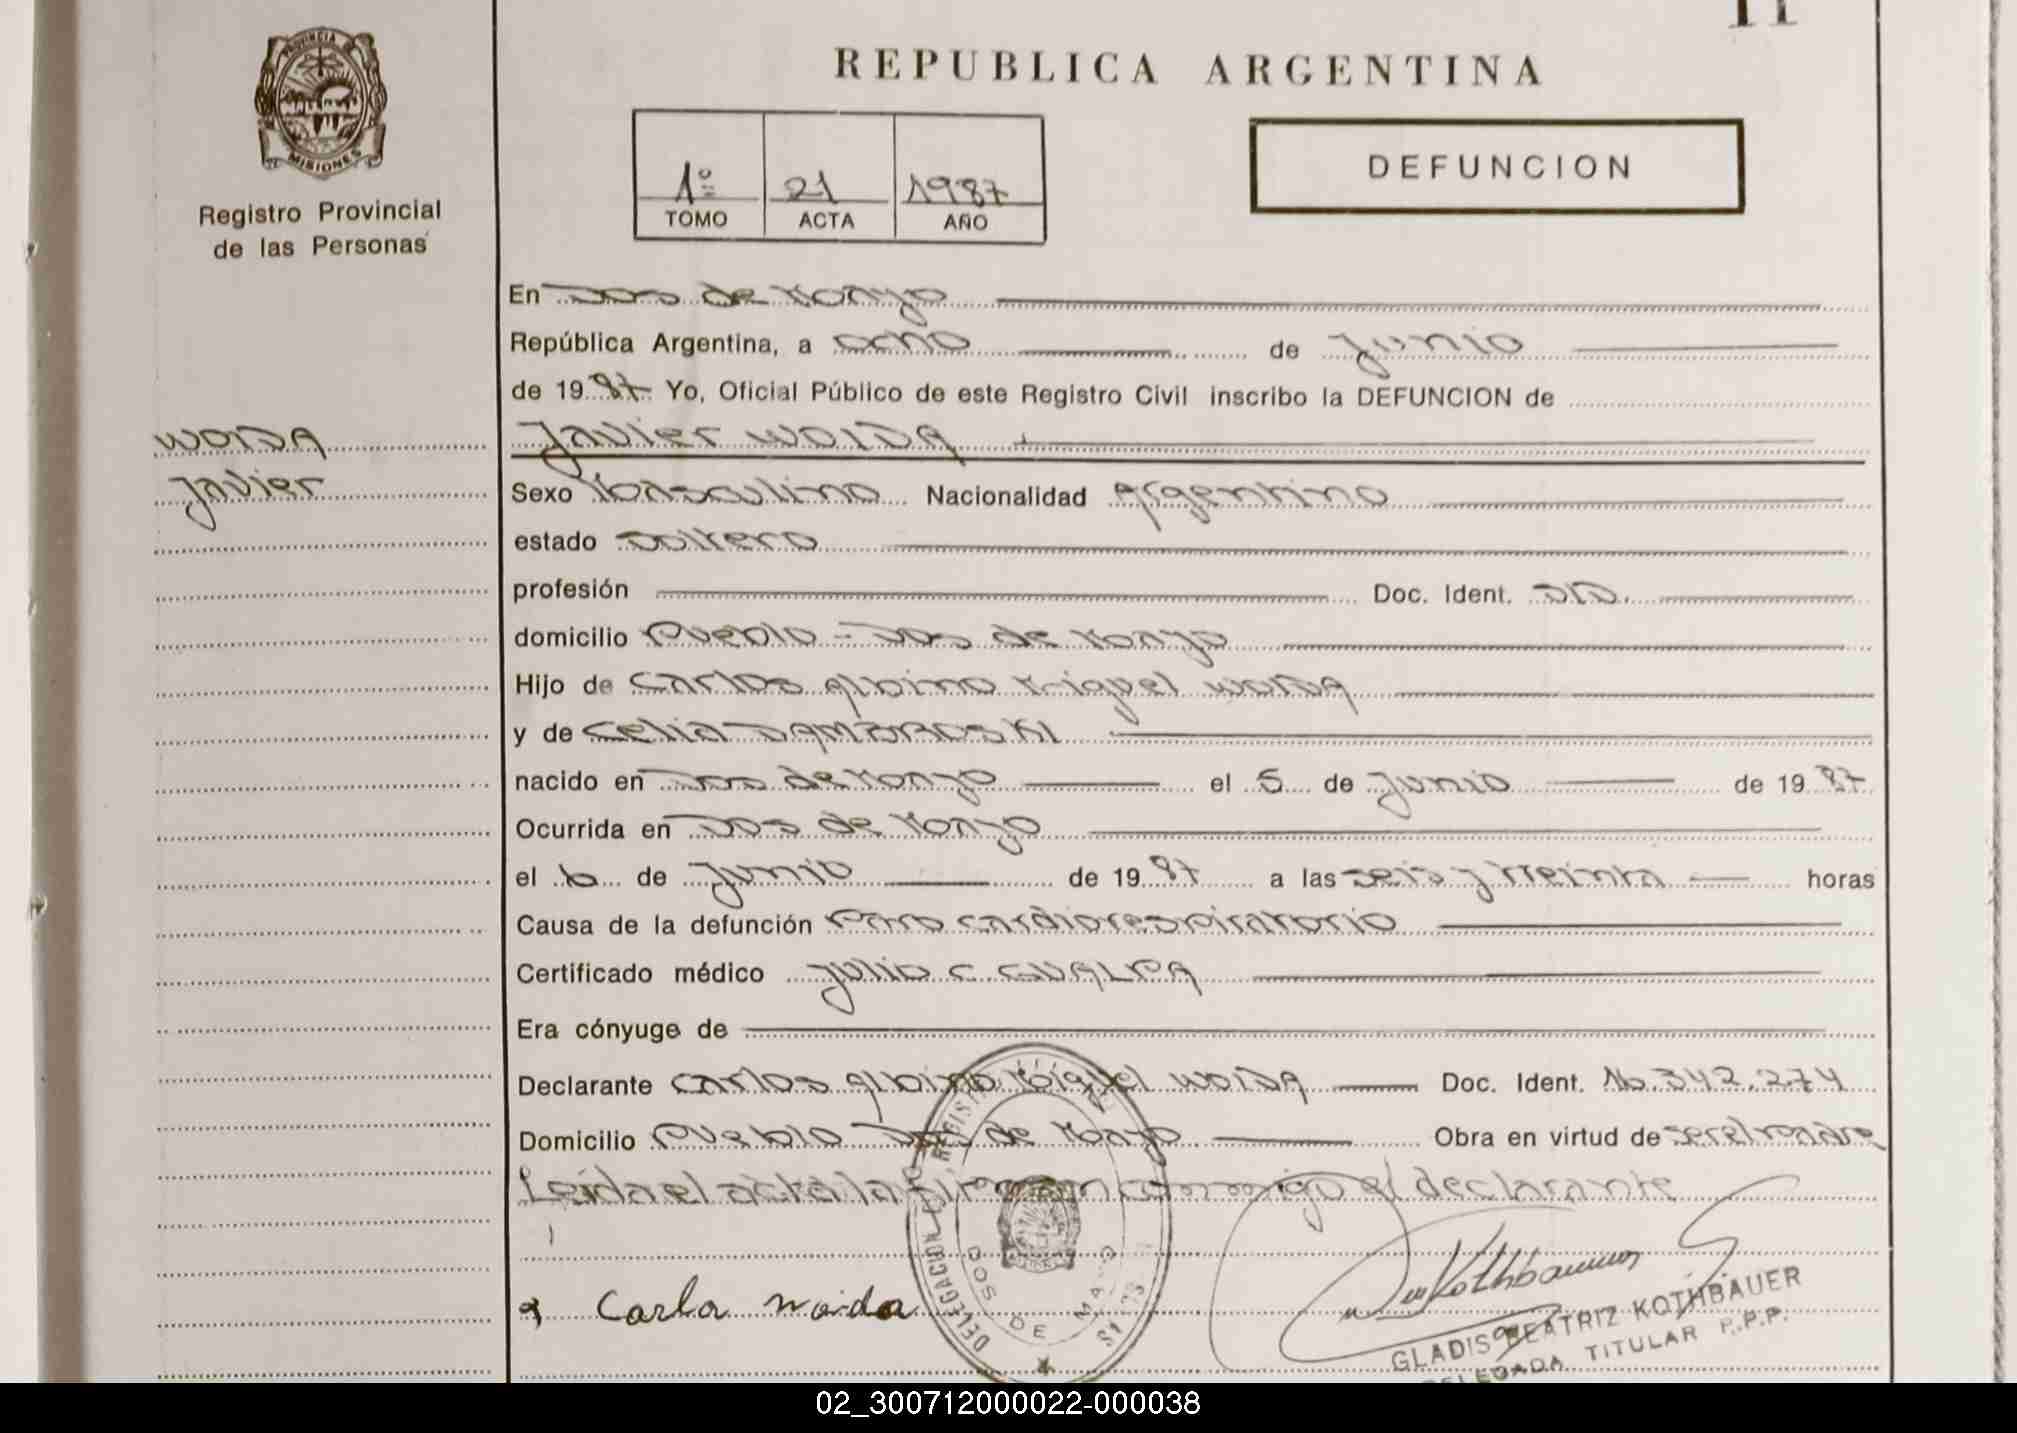 11
REPUBLICA ARGENTINA
PROVINCIA D
MISIONES
Registro Provincial
de las Personas
1º 21 1987
TOMO ACTA AÑO
DEFUNCION
En Dos de Mayo
República Argentina, a ocho de Junio
de 1987 Yo, Oficial Público de este Registro Civil inscribo la DEFUNCION de
WOIDA
Javier WOIDA
Javier
Sexo Masculino Nacionalidad Argentino
estado Soltero
profesión Doc. Ident.
domicilio Pueblo - Dos de Mayo
Hijo de Carlos Albino Miguel WOIDA
y de Celia DAMBROSKI
nacido en Dos de Mayo el 5 de Junio de 1987
Ocurrida en Dos de Mayo
el 6 de Junio de 1987 a las seis y treinta horas
Causa de la defunción Paro cardiorespiratorio
Certificado médico Julio C. GUALPA
Era cónyuge de
Declarante Carlos Albino Miguel WOIDA Doc. Ident. 16.342.274
Domicilio Pueblo Dos de Mayo Obra en virtud de ser el padre
Leida el acta la firma conmigo el declarante
Carla Woida
DELEGACION REGISTRO
DOS DE MAYO
Kothbauer
GLADIS BEATRIZ KOTHBAUER
DELEGADA TITULAR R.P.P.
02_300712000022-000038